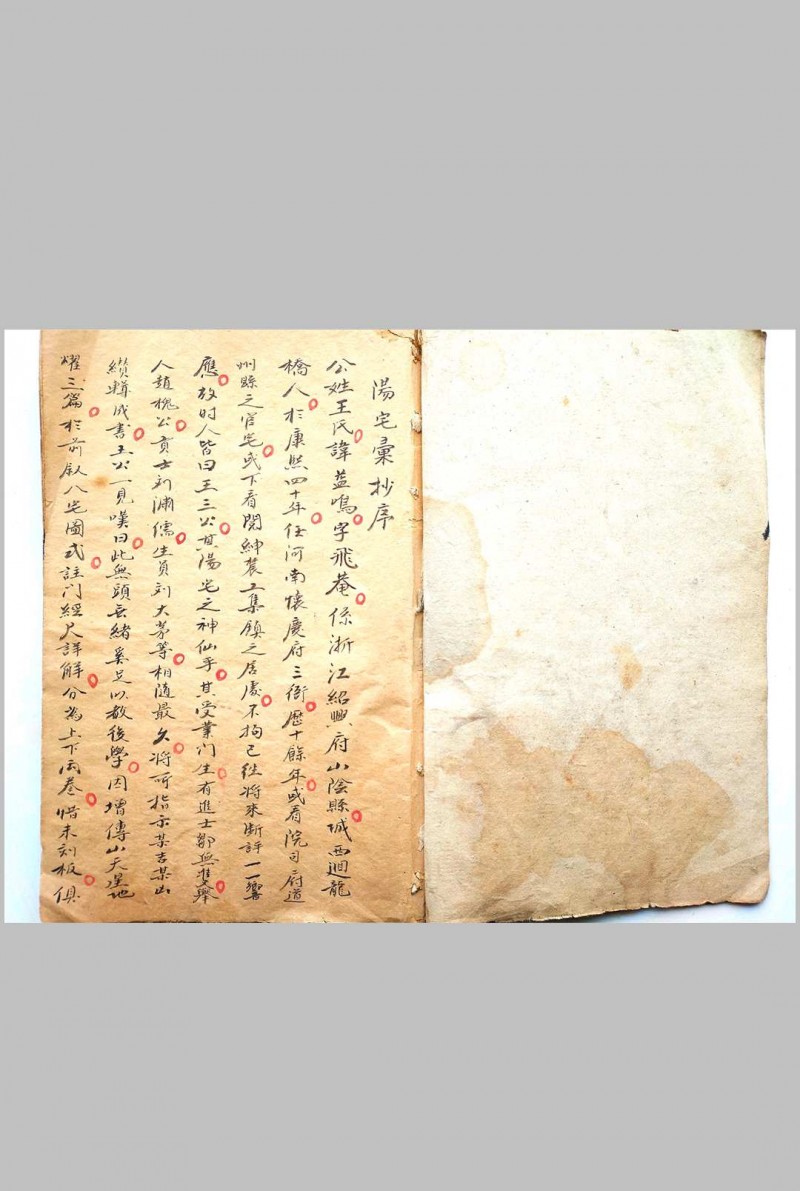 陽宅彙抄序
公姓王氏諱益鳴字飛菴係浙江紹興府山陰縣城西迴龍
橋人於康熙四十年任河南懷慶府三衙歷十餘年或看院司府道
州縣之官宅或下看閱紳農工集鎮之居處不拘已往將來斷評一一響
應故时人皆曰王三公其陽宅之神仙乎其受業门生有進士鄒無雙舉
人趙槐公貢士刘浦儒生員刘大茅等相随最久將所指示某吉某凶
纘輯成書王公一見嘆曰此無頭無緒奚足以教後學因增傳山天星地
耀三篇於前叙八宅圖式註门經尺詳解分為上下兩卷惜未刻板俱